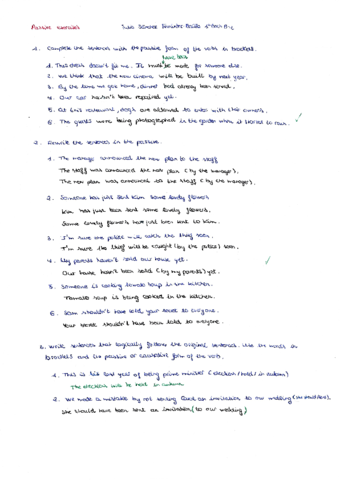 Passive exercises
1. Complete the sentences with the passive form of the verbs in brackets.
have been
1. This dress doesn't fit me. It must be made for someone else.
2. We think that the new cinema will be built by next year.
3. By the time we got home, dinner had already been served.
4. Our car hasn't been repaired yet.
5. At this restaurant, dogs are allowed to enter with their owners.
6. The guests were being photographed in the garden when it started to rain.
2. Rewrite the sentences in the passive.
1. The manager announced the new plan to the staff
The staff was announced the new plan (by the manager).
The new plan was announced to the staff (by the manager).
2. Someone has just sent Kim some lovely flowers
Kim has just been sent some lovely flowers.
Some lovely flowers have just been sent to Kim.
3. I'm sure the police will catch the thief soon.
I'm sure the thief will be caught (by the police) soon.
4. My parents haven't sold our house yet.
Our house hasn't been sold (by my parents) yet.
5. Someone is cooking tomato soup in the kitchen.
Tomato soup is being cooked in the kitchen.
6. Sam shouldn't have told your secret to anyone.
Your secret shouldn't have been told to anyone.
3. Write sentences that logically follow the original sentences. Use the words in
brackets and the passive or causative form of the verb.
1. This is his last year of being prime minister (elections/hold/in autumn)
The elections will be held in autumn
2. We made a mistake by not sending an invitation to our wedding
She should have been sent an invitation (to our wedding)